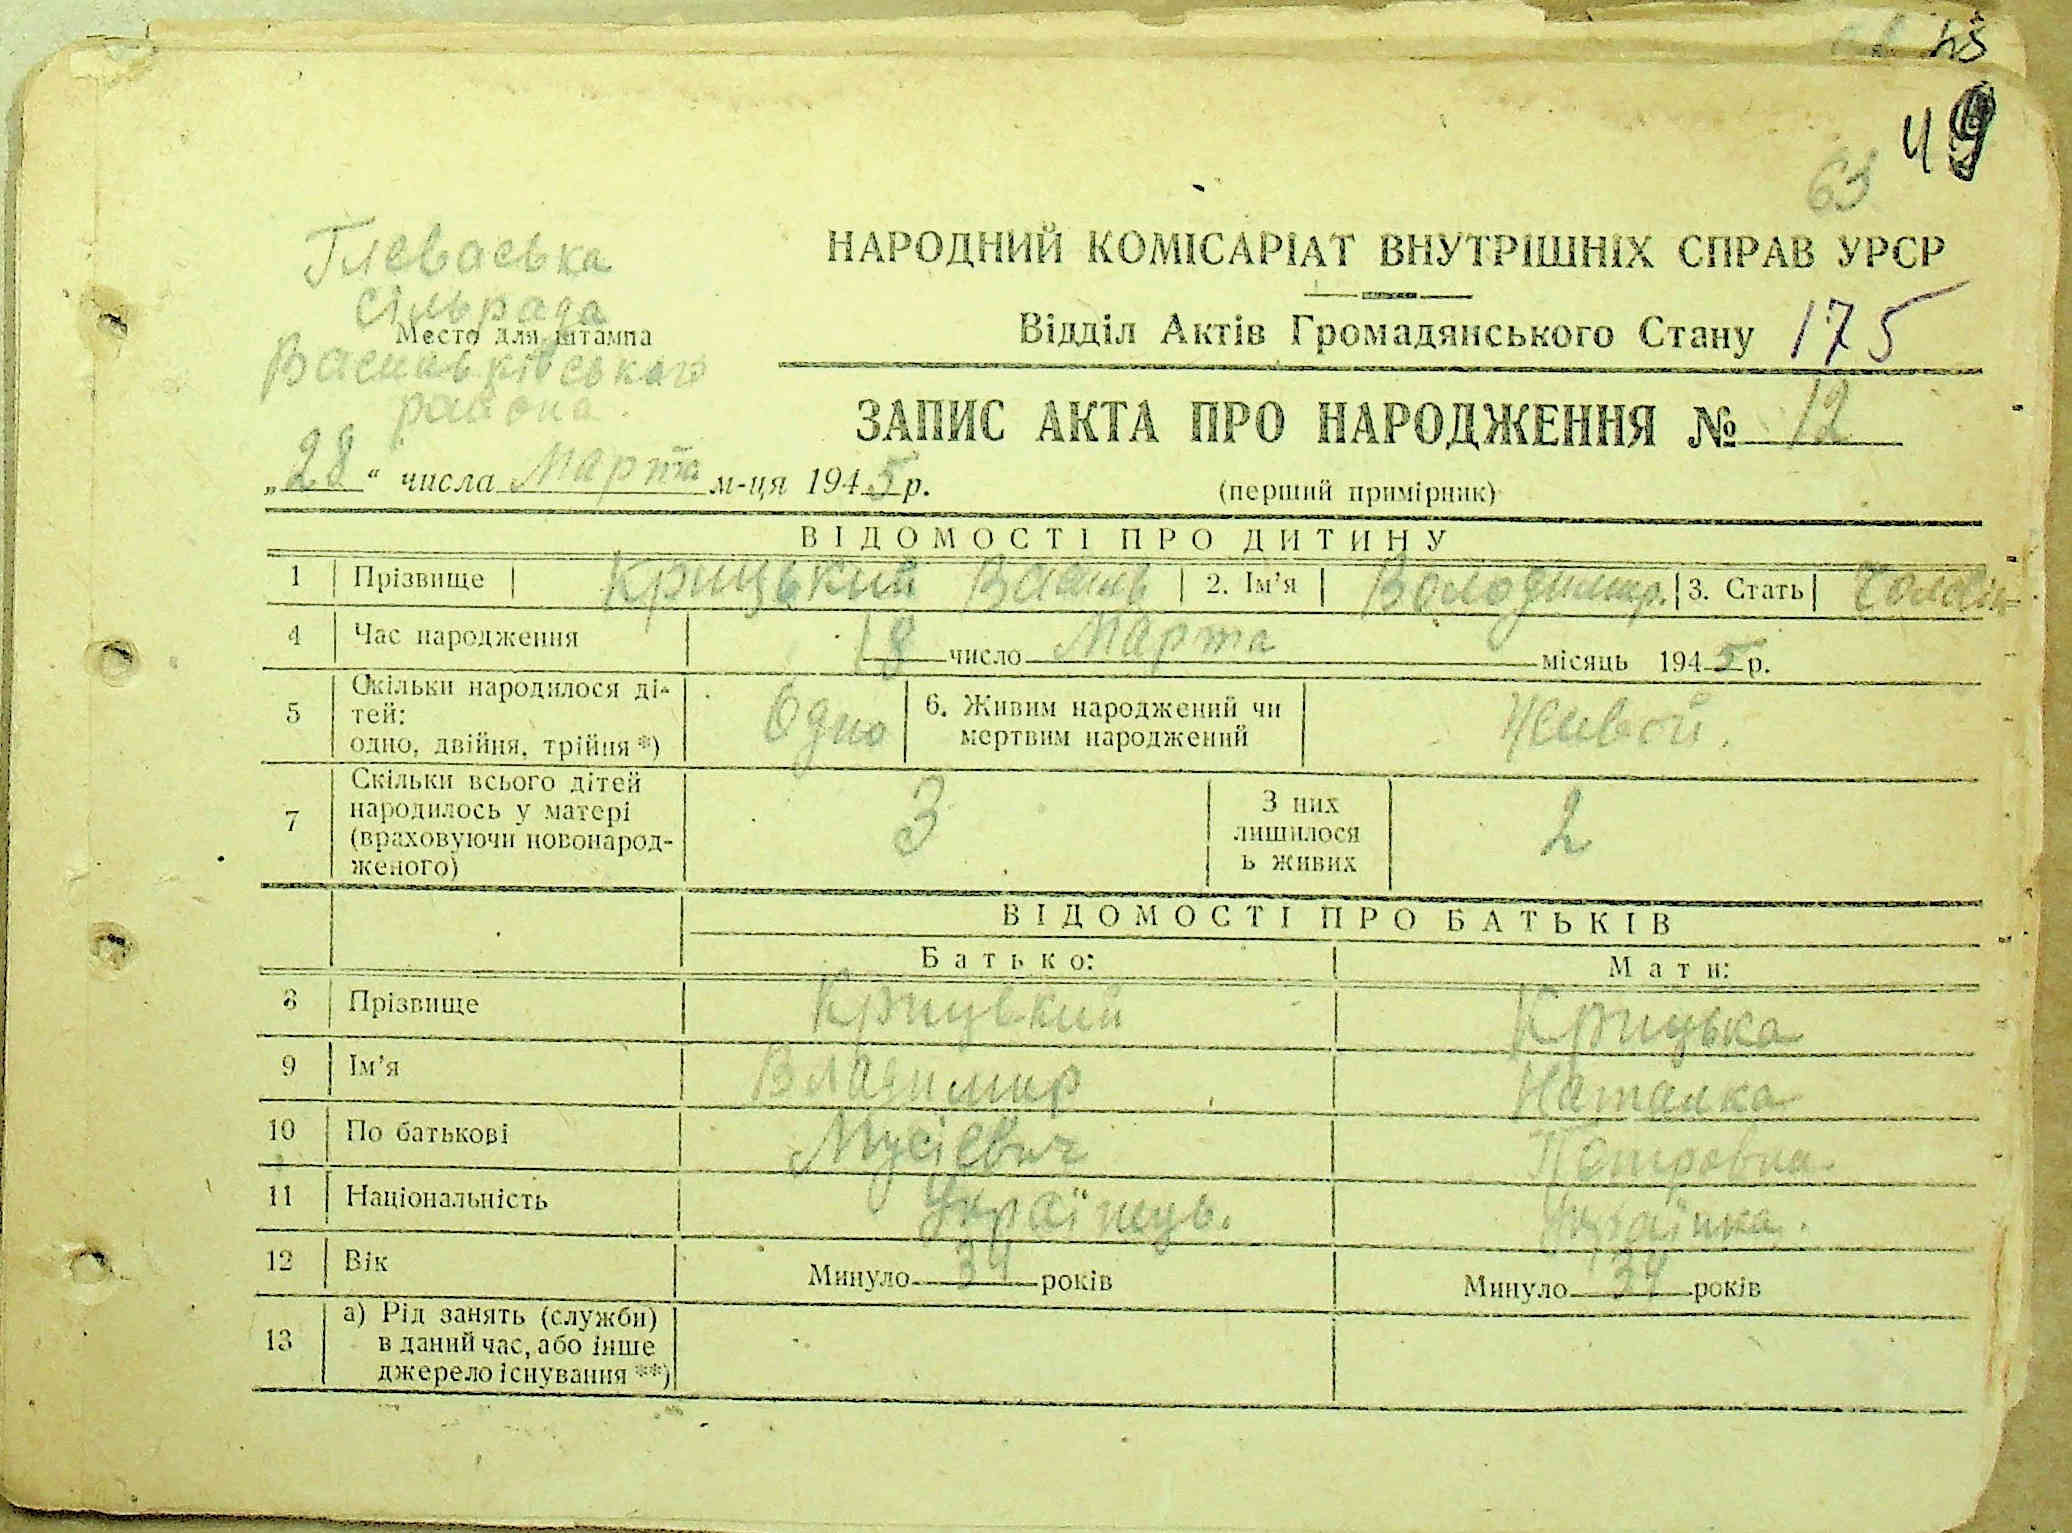 45
49
63
Глеваська
сільрада
Место для штампа
Васильківського
района.
НАРОДНИЙ КОМІСАРІАТ ВНУТРІШНІХ СПРАВ УРСР
Відділ Актів Громадянського Стану 175
ЗАПИС АКТА ПРО НАРОДЖЕННЯ № 12
„28“ числа Марта м-ця 1945 р.
(перший примірник)
ВІДОМОСТІ ПРО ДИТИНУ
1 Прізвище Крицький Василь 2. Ім'я Володимир. 3. Стать
4 Час народження 18 число Марта місяць 1945 р.
5 Скільки народилося ді-
тей:
одно, двійня, трійня*) Одно
6. Живим народжений чи
мертвим народжений Живой.
7 Скільки всього дітей
народилось у матері
(враховуючи новонарод-
женого) 3
З них
лишилося
ь живих 2
ВІДОМОСТІ ПРО БАТЬКІВ
Батько: Мати:
8 Прізвище Крицький Крицька
9 Ім'я Владимир Наталка
10 По батькові Мусієвич Петровна.
11 Національність Українець. Українка.
12 Вік Минуло 34 років Минуло 34 років
13 а) Рід занять (служби)
в даний час, або інше
джерело існування **)